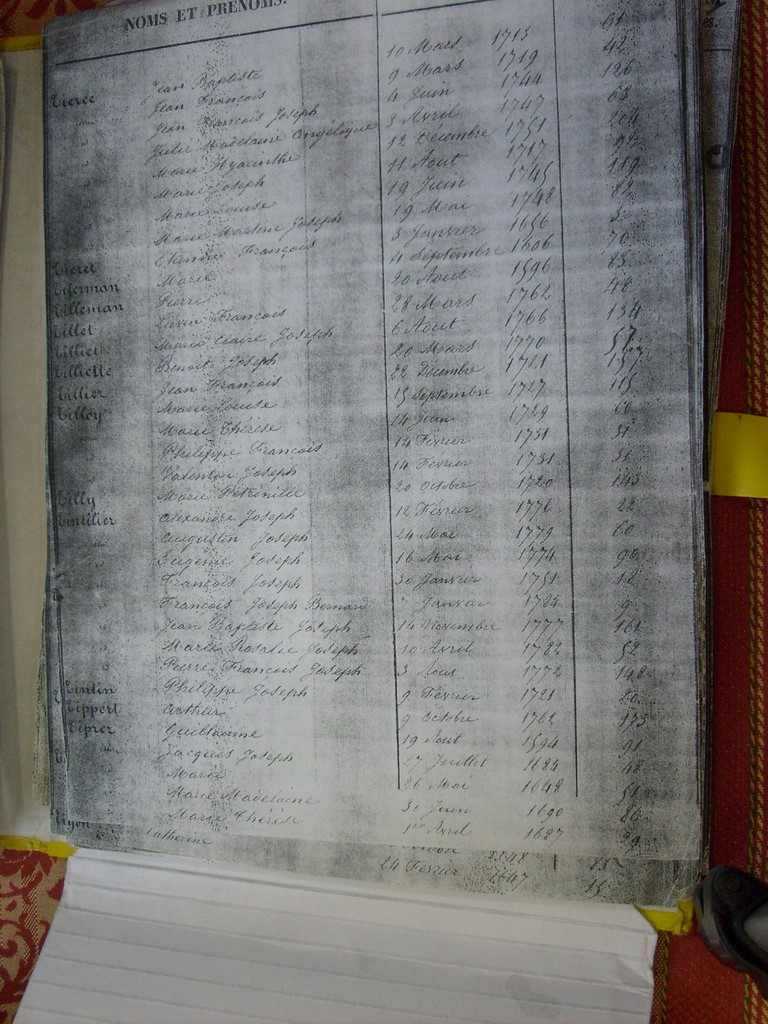 NOMS ET PRÉNOMS.
Tierce Jean Baptiste 10 Mars 1713 61
Jean François 9 Mars 1719 42
Jean François Joseph 4 Juin 1744 126
Julie Madelaine Angélique 3 Avril 1747 68
Marie Hyacinthe 12 Décembre 1751 204
Marie Joseph 11 Aout 1717
Marie Louise 19 Juin 1745 119
Marie Martine Joseph 19 Mai 1748 82
Tieret Etienne François 3 Janvier 1656 5
Marie 4 Septembre 1606 70
Tilleman Pierre 20 Aout 1596 83
Tillet François 28 Mars 1762 48
Marie Claire Joseph 6 Aout 1766 134
Tilliette Benoite Joseph 20 Mars 1770 57
Tillier Jean François 22 Décembre 1721
Tilloy Marie Louise 15 Septembre 1727 115
Marie Thérèse 14 Juin 1729 60
Philippe François 14 Février 1731 31
Valentin Joseph 14 Février 1731 31
Tilly Marie Petronille 20 Octobre 1720 143
Tintilier Alexandre Joseph 12 Février 1776 22
Augustin Joseph 24 Mai 1779 60
Eugénie Joseph 16 Mai 1774 90
François Joseph 30 Janvier 1751 18
François Joseph Bernard 7 Janvier 1784 9
Jean Baptiste Joseph 14 Novembre 1777 161
Marie Rosalie Joseph 10 Avril 1782 52
Pierre François Joseph 3 Aout 1772 148
Tintin Philippe Joseph 9 Février 1721 20
Tippert Arthur 9 Octobre 1762 173
Tiprez Guillaume 19 Aout 1594 91
Jacques Joseph 27 Juillet 1684 48
Marie 26 Mai 1648 51
Marie Madelaine 30 Juin 1690 86
Marie Thérèse 1er Avril 1687 29
Catherine
24 Février 1647 15